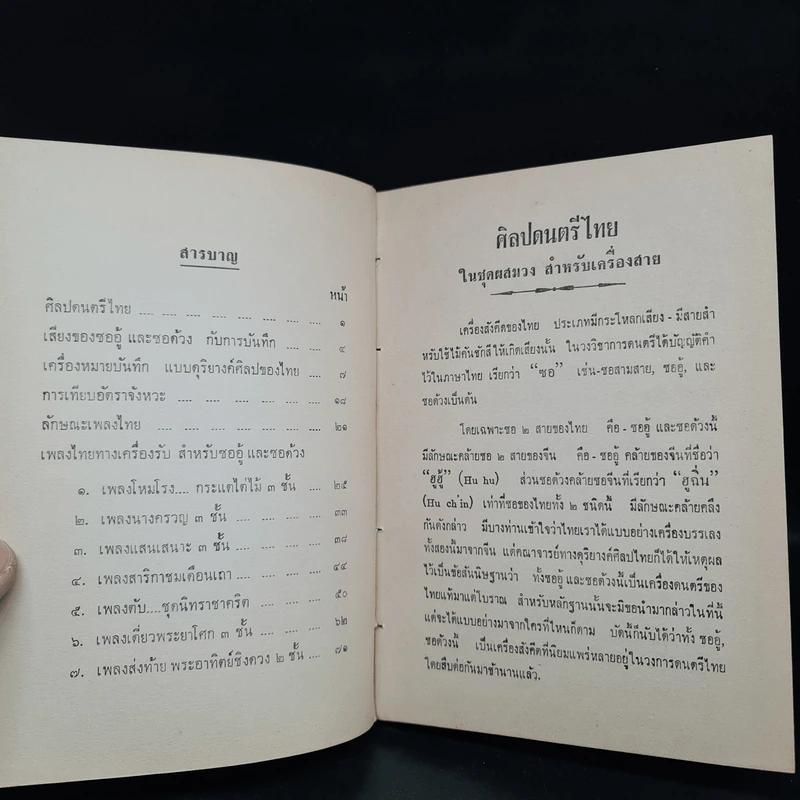 สารบาญ
หน้า
ศิลปดนตรีไทย .... .... .... .... .... .... .... ๑
เสียงของซออู้ และซอด้วง กับการบันทึก .... ๔
เครื่องหมายบันทึก แบบดุริยางค์ศิลปของไทย .... ๗
การเทียบอัตราจังหวะ .... .... .... .... .... ๑๘
ลักษณะเพลงไทย .... .... .... .... .... .... ๒๑
เพลงไทยทางเครื่องรับ สำหรับซออู้ และซอด้วง
๑. เพลงโหมโรง.... กระแตไต่ไม้ ๓ ชั้น .... ๒๕
๒. เพลงนางครวญ ๓ ชั้น .... .... .... ๓๓
๓. เพลงแสนเสนาะ ๓ ชั้น .... .... .... ๓๘
๔. เพลงสาริกาชมเดือนเถา .... .... .... ๔๔
๕. เพลงตับ....ชุดนิทราชาคริต .... .... ๕๐
๖. เพลงเดี่ยวพระยาโศก ๓ ชั้น .... .... ๖๒
๗. เพลงส่งท้าย พระอาทิตย์ชิงดวง ๒ ชั้น .... ๗๑
ศิลปดนตรีไทย
ในชุดผสมวง สำหรับเครื่องสาย
เครื่องสังคีตของไทย ประเภทมีกระโหลกเสียง - มีสายสำ
หรับใช้ไม้คันชักสีให้เกิดเสียงนั้น ในวงวิชาการดนตรีได้บัญญัติคำ
ไว้ในภาษาไทย เรียกว่า “ซอ” เช่น-ซอสามสาย, ซออู้, และ
ซอด้วงเป็นต้น
โดยเฉพาะซอ ๒ สายของไทย คือ - ซออู้ และซอด้วงนี้
มีลักษณะคล้ายซอ ๒ สายของจีน คือ - ซออู้ คล้ายของจีนที่ชื่อว่า
“ฮูฮู้” (Hu hu) ส่วนซอด้วงคล้ายซอจีนที่เรียกว่า “ฮูฉิ่น”
(Hu ch'in) เท่าที่ซอของไทยทั้ง ๒ ชนิดนี้ มีลักษณะคล้ายคลึง
กันดังกล่าว มีบางท่านเข้าใจว่าไทยเราได้แบบอย่างเครื่องบรรเลง
ทั้งสองนี้มาจากจีน แต่คณาจารย์ทางดุริยางค์ศิลปไทยก็ได้ให้เหตุผล
ไว้เป็นข้อสันนิษฐานว่า ทั้งซออู้ และซอด้วงนี้เป็นเครื่องดนตรีของ
ไทยแท้มาแต่โบราณ สำหรับหลักฐานนั้นจะมิขอนำมากล่าวในที่นี้
แต่จะได้แบบอย่างมาจากใครที่ไหนก็ตาม บัดนี้ก็นับได้ว่าทั้ง ซออู้,
ซอด้วงนี้ เป็นเครื่องสังคีตที่นิยมแพร่หลายอยู่ในวงการดนตรีไทย
โดยสืบต่อกันมาช้านานแล้ว.